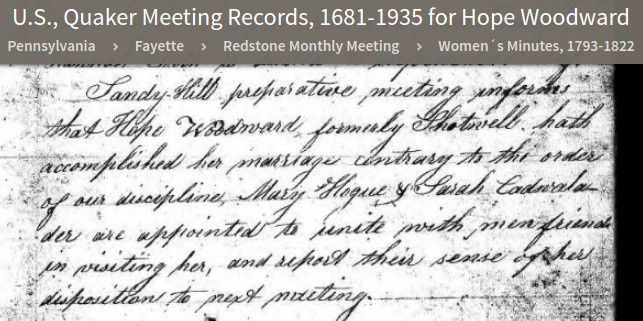 U.S., Quaker Meeting Records, 1681-1935 for Hope Woodward
Pennsylvania › Fayette › Redstone Monthly Meeting › Women´s Minutes, 1793-1822
Sandy Hill preparative meeting informs
that Hope Woodward, formerly Shotwell. hath
accomplished her marriage contrary to the order
of our discipline, Mary Hogue & Sarah Cadwala-
der are appointed to unite with men friends
in visiting her, and report their sense of her
disposition to next meeting.